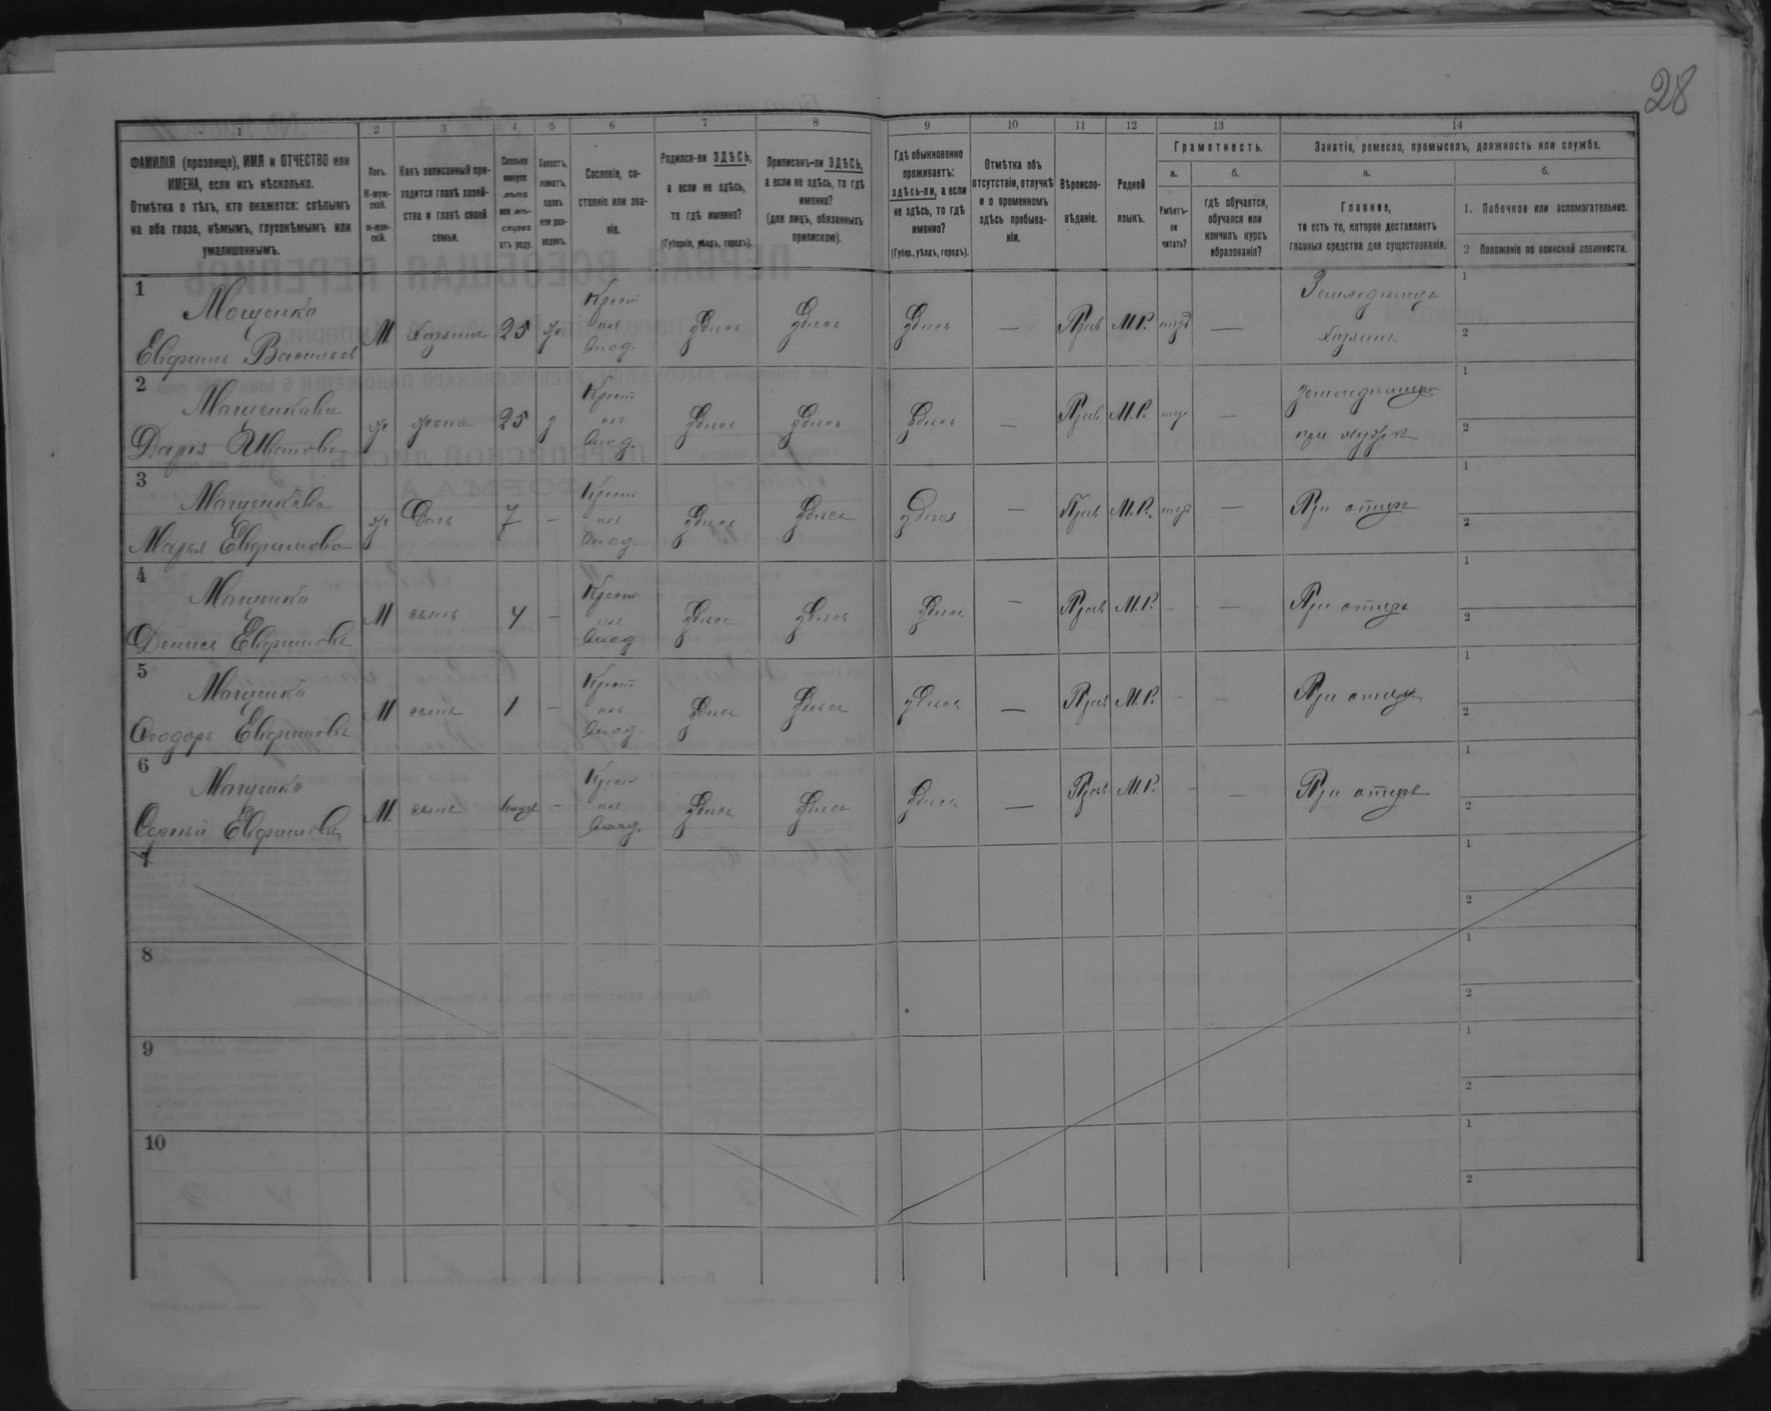 28
1 2 3 4 5 6 7 8 9 10 11 12 13 14
ФАМИЛІЯ (прозвище), ИМЯ и ОТЧЕСТВО или
ИМЕНА, если ихъ нѣсколько.
Отмѣтка о тѣхъ, кто окажется: слѣпымъ
на оба глаза, нѣмымъ, глухонѣмымъ или
умалишеннымъ.
Полъ.
М-муж-
ской.
ж-жен-
скій.
Какъ записанный при-
ходится главѣ хозяй-
ства и главѣ своей
семьи.
Сколько
минуло
лѣтъ
или мѣ-
сяцевъ
отъ роду.
Холостъ,
женатъ,
вдовъ
или раз-
веденъ.
Сословіе, со-
стояніе или зва-
ніе.
Родился-ли ЗДѢСЬ,
а если не здѣсь,
то гдѣ именно?
(Губернія, уѣздъ, городъ).
Приписанъ-ли ЗДѢСЬ,
а если не здѣсь, то гдѣ
именно?
(для лицъ, обязанныхъ
припискою).
Гдѣ обыкновенно
проживаетъ:
здѣсь-ли, а если
не здѣсь, то гдѣ
именно?
(Губер., уѣздъ, городъ).
Отмѣтка объ
отсутствіи, отлучкѣ
и о временномъ
здѣсь пребыва-
ніи.
Вѣроиспо-
вѣданіе.
Родной
языкъ.
Грамотность.
а.
Умѣетъ-
ли
читать?
б.
гдѣ обучается,
обучался или
кончилъ курсъ
образованія?
Занятія, ремесло, промыселъ, должность или служба.
а.
Главное,
то есть то, которое доставляетъ
главныя средства для существованія.
б.
1. Побочное или вспомогательное.
2 Положеніе по воинской повинности.
1
Мощенко
Евфимъ Васильевъ
М Хозяинъ 25 ж. Крест Здѣсь Здѣсь Здѣсь — Прав М.Р. — Земледѣлецъ
хозяинъ
1
2
2
Мощенкова
Дарья Иванова
ж жена 25 з Крест Здѣсь Здѣсь Здѣсь — Прав М.Р. —
при мужѣ
1
2
3
Мощенкова
Марья Евфимова
ж Дочь 7 — Крест Здѣсь Здѣсь Здѣсь — Прав М.Р. — При отцѣ
1
2
4
Мощенко
Денисъ Евфимовъ
М сынъ 4 — Крест Здѣсь Здѣсь Здѣсь — Прав М.Р. - — При отцѣ
1
2
5
Мощенко
Ѳеодоръ Евфимовъ
М сынъ 1 — Крест Здѣсь Здѣсь Здѣсь — Прав М.Р. - - При отцѣ
1
2
6
Мощенко
Евфимовъ
М. сынъ — Крест Здѣсь Здѣсь Здѣсь — Прав М.Р. - — При отцѣ
1
2
7
1
2
8
1
2
9
1
2
10
1
2